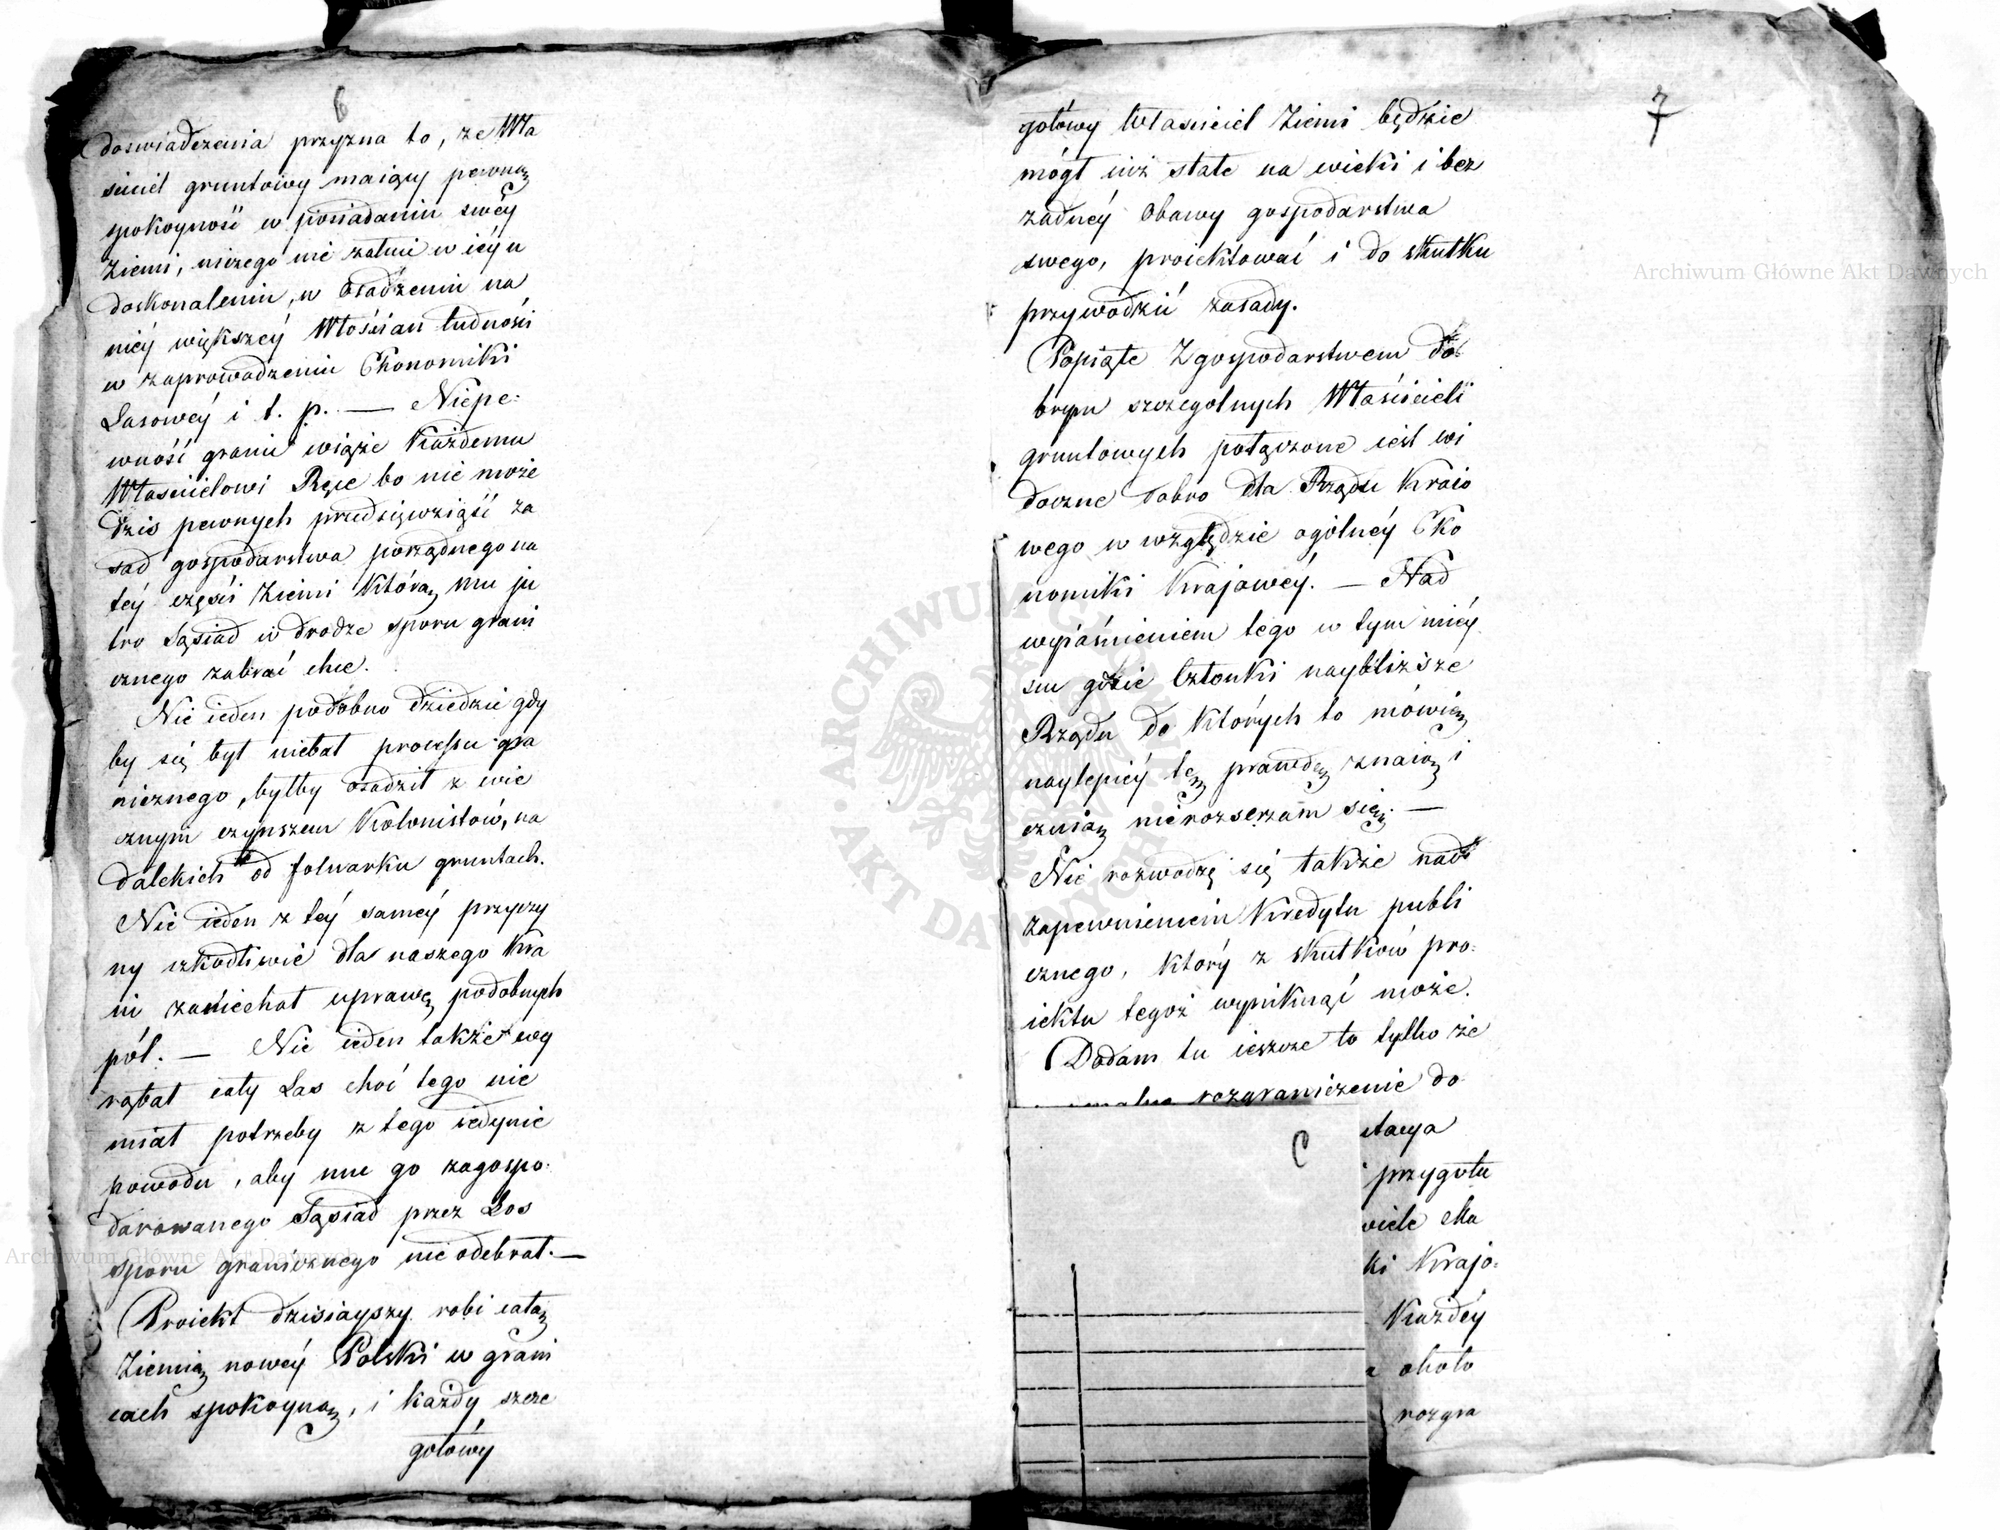 6
doswiadczenia przyzna to, że Wła
ściciel gruntowy maiący pewną
spokoyność w posiadaniu swéy
Ziemi, niczego nie żałuie w iéy u
doskonaleniu, w osadzeniu na
niéy większéy Włościan ludności
w zaprowadzeniu Ekonomiki
Lasowéy i t. p. — Niepe-
wność granic wiąże Każdemu
Właścicielowi Ręce bo nie może
dziś pewnych przedsięwziąść za
sad gospodarstwa porządnego na
téy części Ziemi Którą mu ju
tro Sąsiad w drodze sporu grani
cznego zabrać chce.
Nie ieden podobno dziedzic gdy
by się był niebał processu gra
nicznego, byłby osadził z wie
cznym czynszem Kolonistów, na
dalekich od folwarku gruntach.
Nie ieden z téy saméy przyczy
ny szkodliwie dla naszego Kra
iu zaniechał uprawę podobnych
pól. — Nie ieden także wy
rąbał cały Las choć tego nie
miał potrzeby z tego iedynie
powodu, aby mu go zagospo-
darowanego Sąsiad przez Los
sporu granicznego nie odebrał. —
Proiekt dzisiayszy robi całą
Ziemię nowéy Polski w grani
cach spokoyną, i każdy szcze
gołówy
7
gołówy Właściciel Ziemi będzie
mógł iuż stałe na wieki i bez
żadnéy obawy gospodarstwa
swego, proiektować i do skutku
przywodzić zasady.
Popiąte Z gospodarstwem do-
brym szczególnych Właścicieli
gruntowych połączone iest wi
doczne dobro dla Rządu Kraio
wego w względzie ogólnéy Eko
nomiki Krajowéy. — Nad
wyiaśnieniem tego w tym miéy
scu gdzie Członki naybliższe
Rządu do Których to mówię
naylepiéy tę prawdę znaią i
czuią nierozserzam się. —
Nie rozwodzę się także nad
zapewnieniem Kredytu publi
cznego, który z skutków pro-
iektu tegoż wyniknąć może.
Dodam tu ieszcze to tylko że
rozgraniczenie do
C
przygotu
wiele
Krajo-
Każdéy
około
rozgra
Archiwum Główne Akt Dawnych
Archiwum Główne Akt Dawnych
ARCHIWUM
AKT DAWNYCH